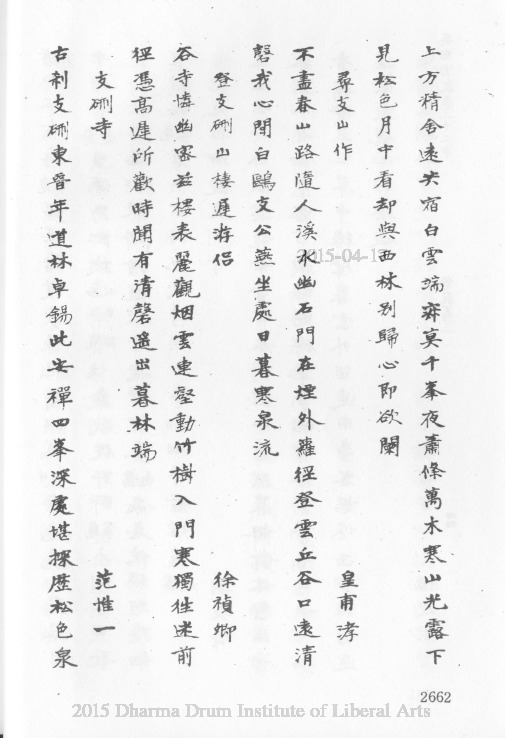 上方精舍遠共宿白雲端寂莫千峯夜蕭條萬木寒山光露下
見松色月中看却與西林別歸心即欲闌
尋支山作　皇甫涍
不盡春山路隨人溪水幽石門在煙外蘿徑登雲丘谷口遠清
磬我心閒白鷗支公燕坐處日暮寒泉流
登支硎山棲遲游侶　徐禎卿
谷寺憐幽宻茲樓表麗觀烟雲連壑動竹樹入門寒獨往迷前
徑憑高遲所歡時聞有清磬遙出暮林端
支硎寺　范惟一
古刹支硎東晉年道林卓錫此安禪四峯深處堪探歷松色泉
2015-04-17
2662
2015 Dharma Drum Institute of Liberal Arts